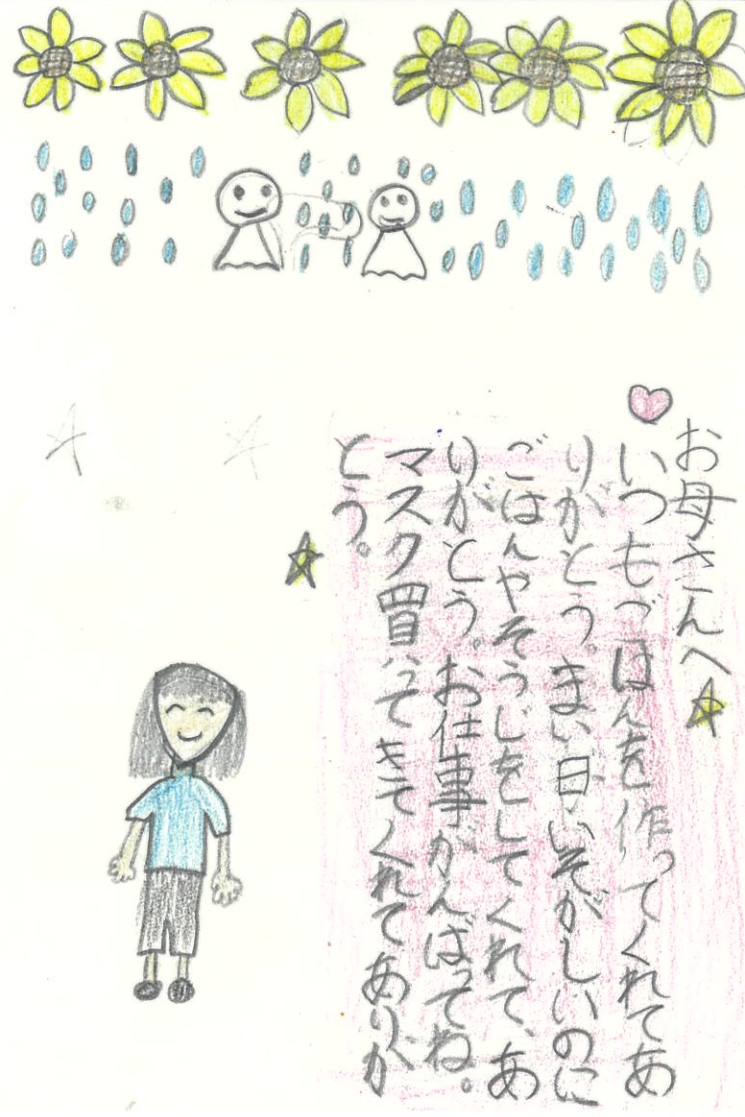 お母さんへ
いつもごはんを作ってくれてあ
りがとう。まい日いそがしいのに
ごはんやそうじをしてくれて、あ
りがとう。お仕事がんばってね。
マスク買ってきてくれてありが
とう。